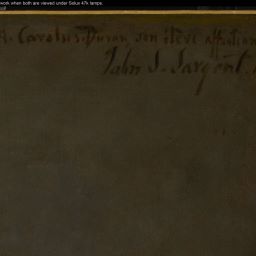 work when both are viewed under Solux 47k lamps.
self
A. Carolus Duran, son élève affection
John S. Sargent.